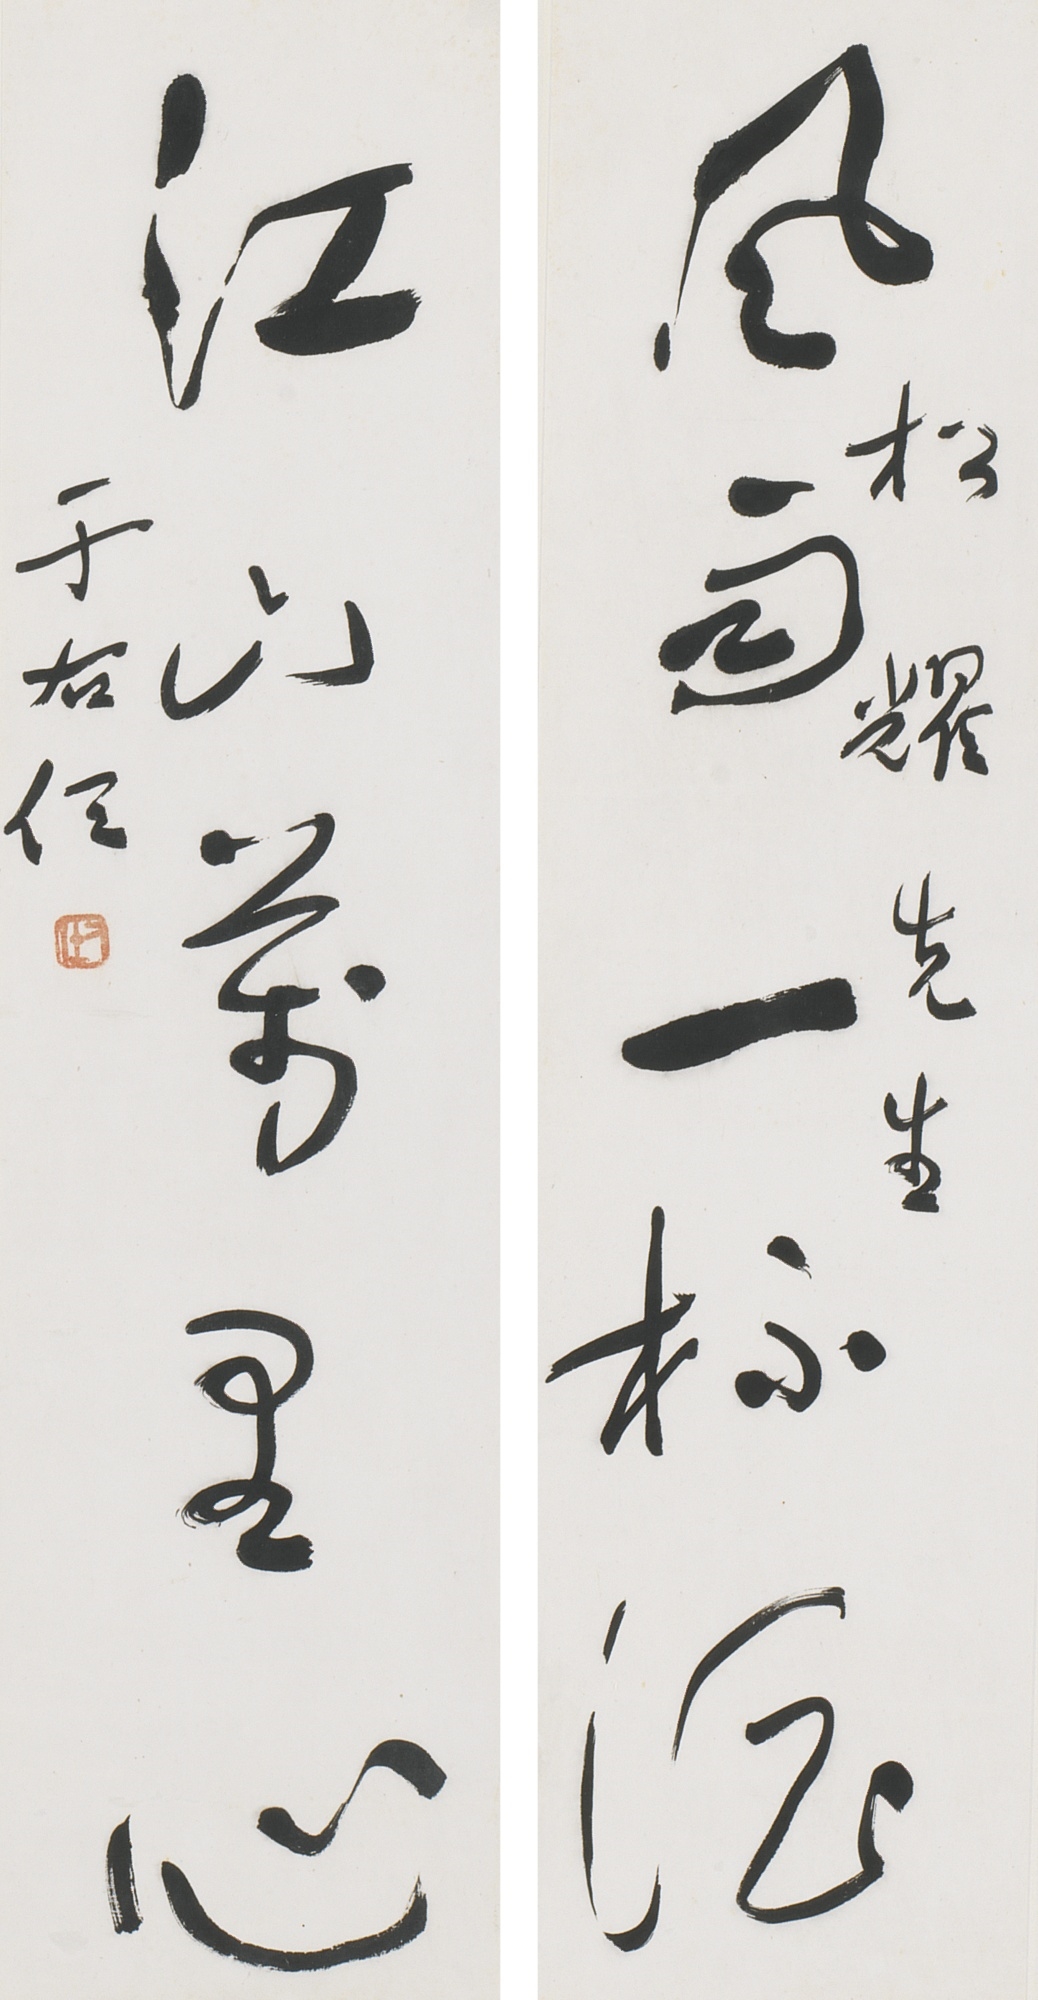 風雨一杯酒
松耀先生
江山萬里心
于右任